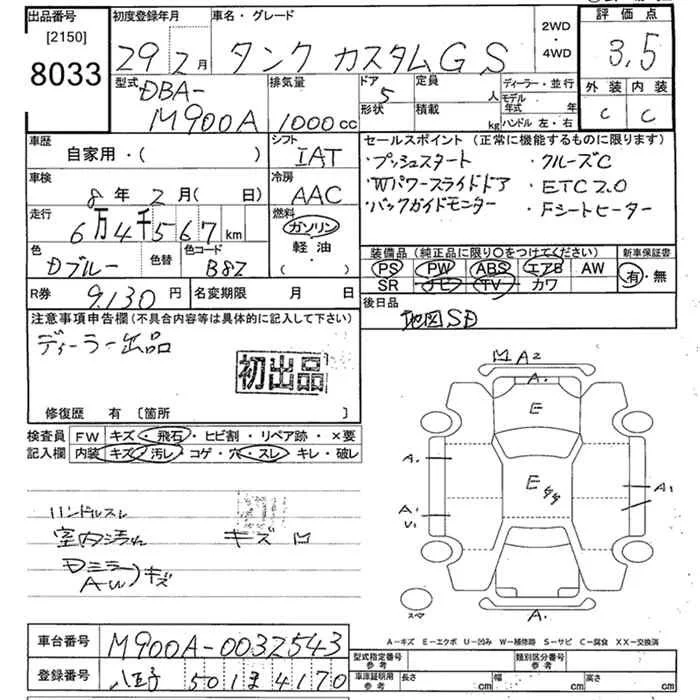 出品番号
[2150]
8033
初度登録年月
29 2月
車名・グレード
タンク カスタムGS
2WD
・
4WD
評価点
3.5
外装 内装
C C
型式
DBA-
M900A
排気量
1000cc
ドア
5
形状
定員
人
積載
kg
ディーラー・並行
モデル年式 年
ハンドル 左・右
車歴
自家用・( )
シフト
IAT
車検
8年2月(日)
冷房
AAC
走行
6万4千567km
燃料
ガソリン
軽油・
( )
色
Dブルー
色替
色コード
B82
R券
9,130円
名変期限 月 日
セールスポイント(正常に機能するものに限ります)
・プッシュスタート ・クルーズC
・Wパワースライドドア ・ETC2.0
・バックガイドモニター ・Fシートヒーター
装備品(純正品に限り○をつけてください)
新車保証書
PS PW ABS エアB AW
SR ナビ TV カワ
有・無
後日品
地図SD
注意事項申告欄(不具合内容等は具体的に記入して下さい)
ディーラー出品
初出品
修復歴 有 〔箇所 〕
検査員記入欄
FW キズ・飛石・ヒビ割・リペア跡・×要
内装 キズ・汚レ・コゲ・穴・スレ・キレ・破レ
ハンドルスレ
室内汚れ キズ凹
Dミラー
AW)キズ
M A2
A.
E
E
タタ
A.
A.
U1
A1
A.
スペア
A-キズ E-エクボ U-凹み W-補修跡 S-サビ C-腐食 XX-交換済
車台番号
M900A-0032543
登録番号
八王子 501 ま 4170
型式指定番号
参考
類別区分番号
参考
車庫証明用
参考
長さ cm 幅 cm 高さ cm